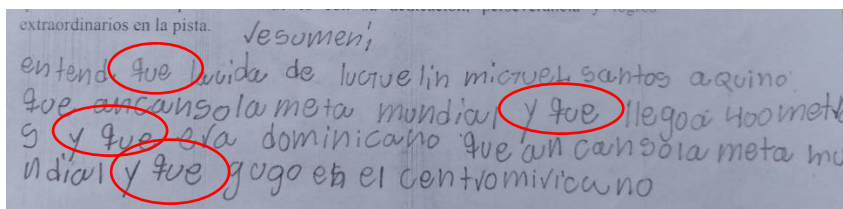 extraordinarios en la pista.
resumen;
entendi que la vida de lucruelin micruel santos aquino
que ancansola meta mundial y que llegoa 400 metro
s y que era dominicano que an can sola meta mu
ndial y que gugo en el centromiricano